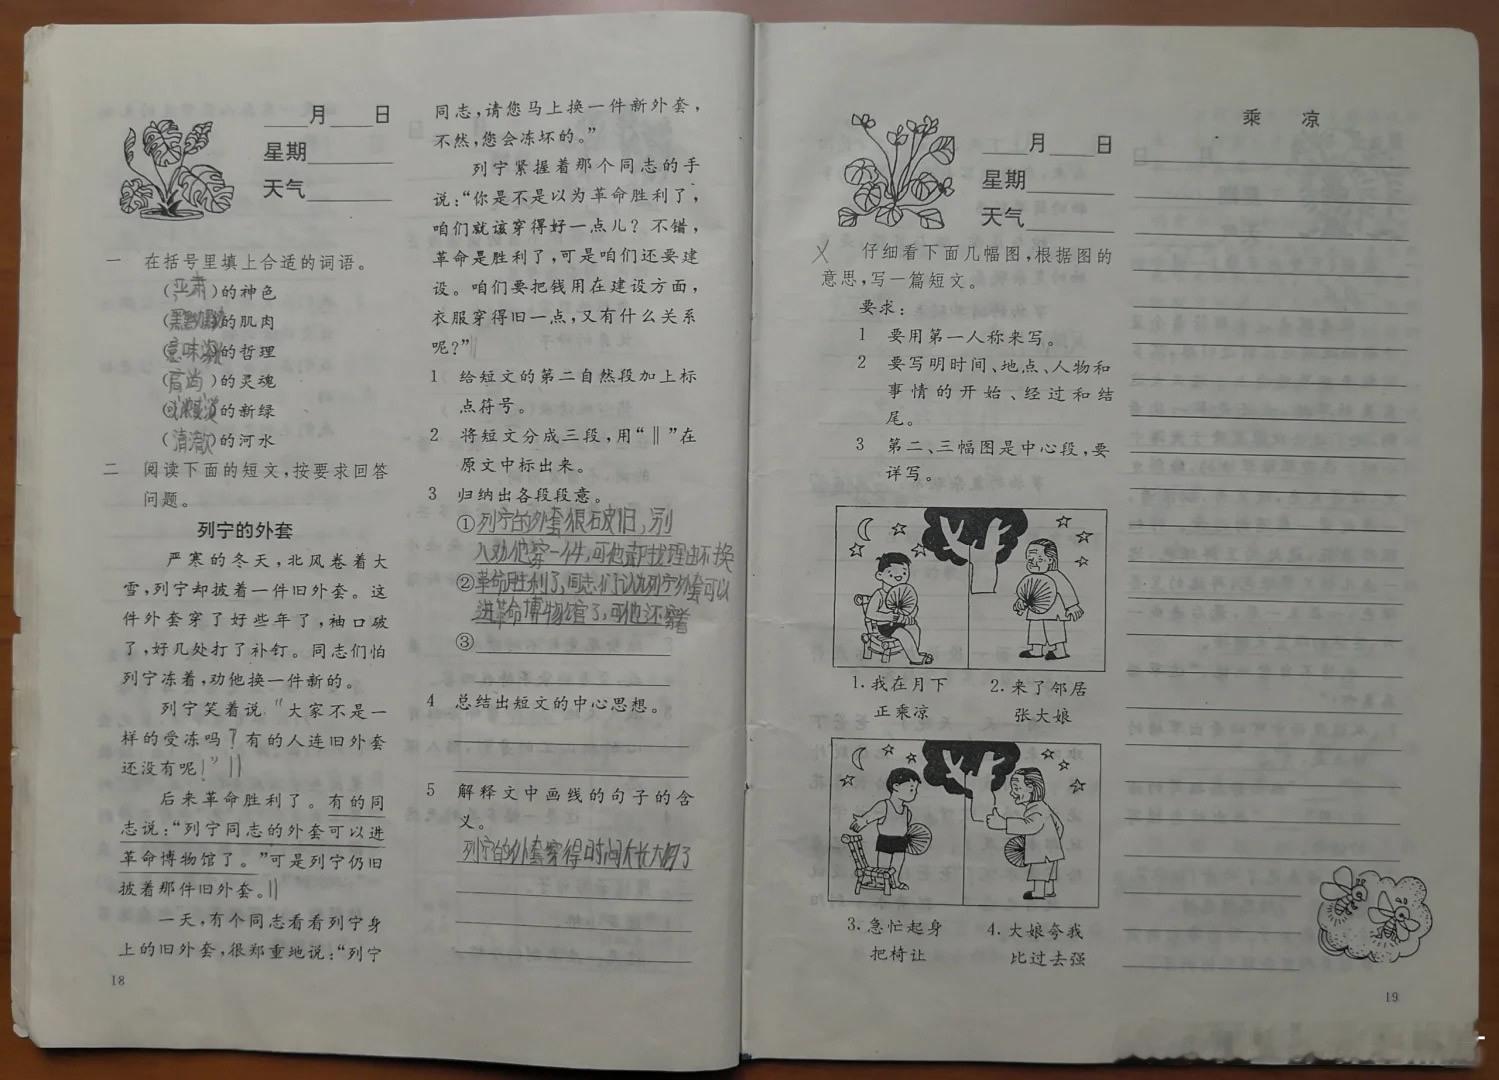 ___月___日
星期______
天气______
一 在括号里填上合适的词语。
(严肃)的神色
(黑黝黝)的肌肉
(意味深)的哲理
(高尚)的灵魂
( )的新绿
(清澈)的河水
二 阅读下面的短文,按要求回答
问题。
列宁的外套
严寒的冬天,北风卷着大
雪,列宁却披着一件旧外套。这
件外套穿了好些年了,袖口破
了,好几处打了补钉。同志们怕
列宁冻着,劝他换一件新的。
列宁笑着说“大家不是一
样的受冻吗?有的人连旧外套
还没有呢!”‖
后来革命胜利了。有的同
志说:“列宁同志的外套可以进
革命博物馆了。”可是列宁仍旧
披着那件旧外套。‖
一天,有个同志看看列宁身
上的旧外套,很郑重地说:“列宁
18
同志,请您马上换一件新外套,
不然,您会冻坏的。”
列宁紧握着那个同志的手
说:“你是不是以为革命胜利了,
咱们就该穿得好一点儿?不错,
革命是胜利了,可是咱们还要建
设。咱们要把钱用在建设方面,
衣服穿得旧一点,又有什么关系
呢?”‖
1 给短文的第二自然段加上标
点符号。
2 将短文分成三段,用“‖”在
原文中标出来。
3 归纳出各段段意。
①列宁的外套很破旧,别
人劝他穿一件,可他都找理由不换
②革命胜利了,同志们认为列宁外套可以
进革命博物馆了,可他还穿着
③
4 总结出短文的中心思想。
5 解释文中画线的句子的含
义。
列宁的外套穿得时间太长太旧了
___月___日
星期______
天气______
仔细看下面几幅图,根据图的
意思,写一篇短文。
要求:
1 要用第一人称来写。
2 要写明时间、地点、人物和
事情的开始、经过和结
尾。
3 第二、三幅图是中心段,要
详写。
1.我在月下 2.来了邻居
正乘凉 张大娘
3.急忙起身 4.大娘夸我
把椅让 比过去强
乘 凉
19